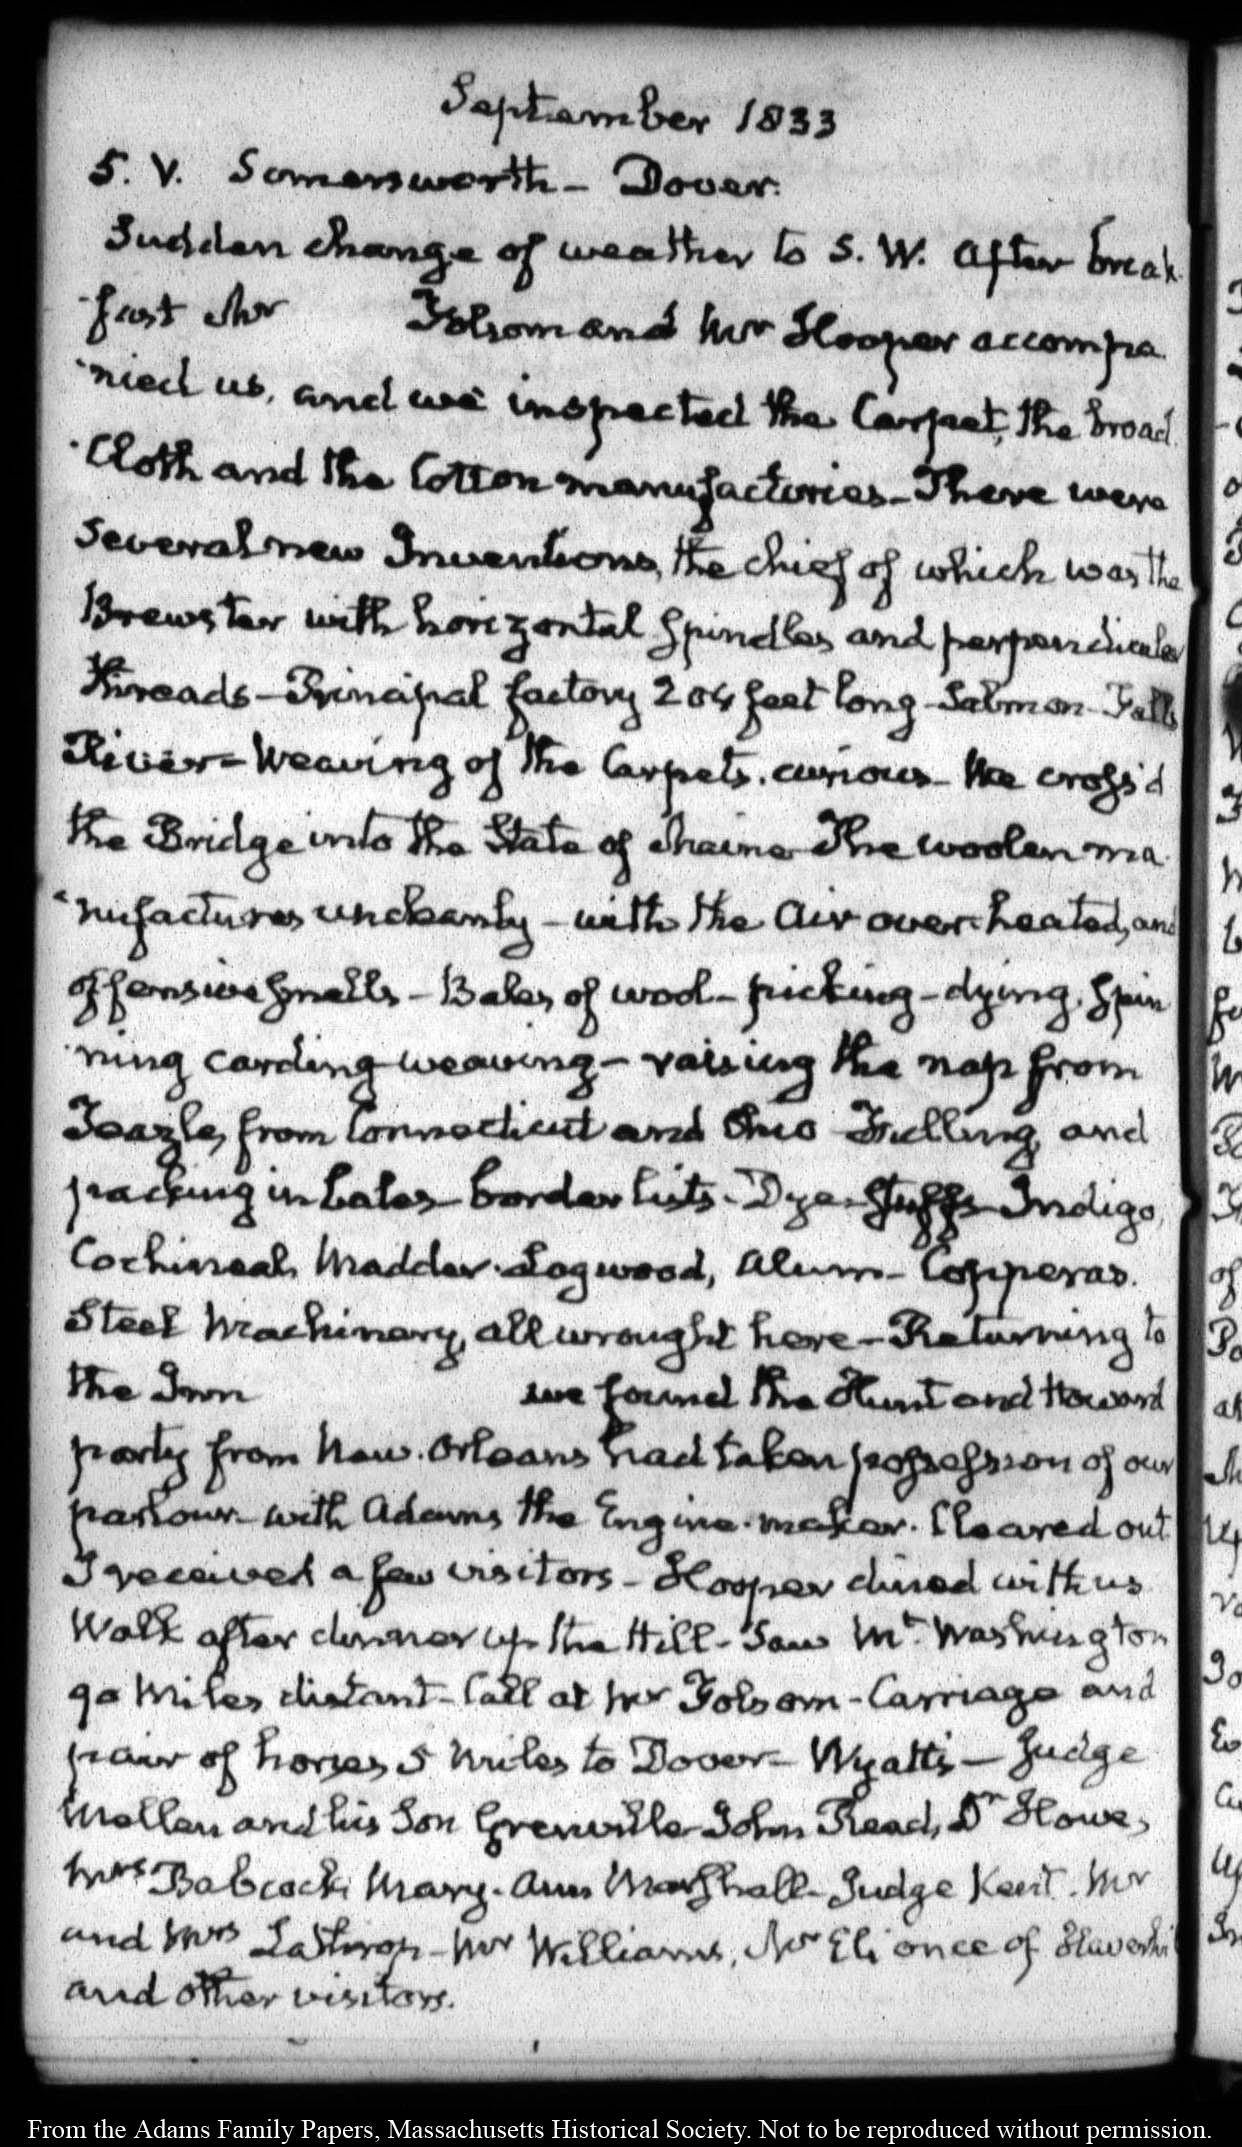 September 1833
5. V. Somersworth – Dover.
Sudden change of weather to S. W. After break-
-fast Mr Folsom and Mr Hooper accompa-
-nied us, and we inspected the Carpet, the broad
-Cloth and the Cotton manufactories – There were
several new Inventions, the chief of which was the
Brewster with horizontal Spindles and perpendicular
threads – Principal factory 204 feet long – Salmon-Falls
River – Weaving of the Carpets curious – We cross'd
the Bridge into the State of Maine – The woolen ma-
-nufactures uncleanly – with the Air over-heated, and
offensive smells – Bales of wool – picking – dying, Spin
-ning carding weaving – raising the nap from
Teazle, from Connecticut and Ohio – Fulling, and
packing in bales – border lists – Dye-stuffs – Indigo,
Cochineal, Madder, Logwood, Alum – Copperas.
Steel Machinery, all wrought here – Returning to
the Inn we found the Hunt and Howard
party from New-Orleans had taken possession of our
parlour – with Adams, the Engine-maker. Cleared out
I received a few visitors – Hooper dined with us
Walk after dinner up the Hill – Saw Mt. Washington
90 Miles distant – Call at Mr Folsom – Carriage and
pair of horses 5 Miles to Dover – Wyatt's – Judge
Mellen and his Son Grenville – John Read, Dr Howe,
Mrs Babcock, Mary-Ann Marshall – Judge Kent. Mr
and Mrs Lathrop – Mr Williams, Mr Eli once of Haverhil
and other visitors.
From the Adams Family Papers, Massachusetts Historical Society. Not to be reproduced without permission.